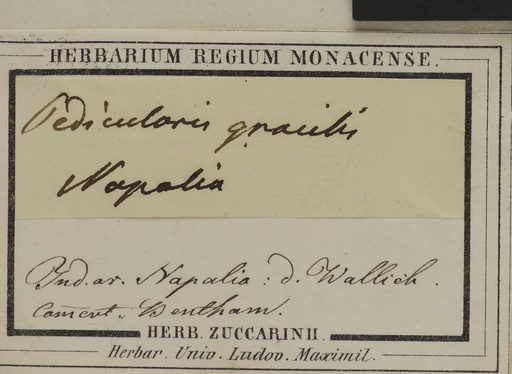 HERBARIUM REGIUM MONACENSE.
Pedicularis gracilis
Napalia
Ind. or. Napalia: d. Wallich.
comert. Bentham.
HERB. ZUCCARINII.
Herbar. Univ. Ludov. Maximil.